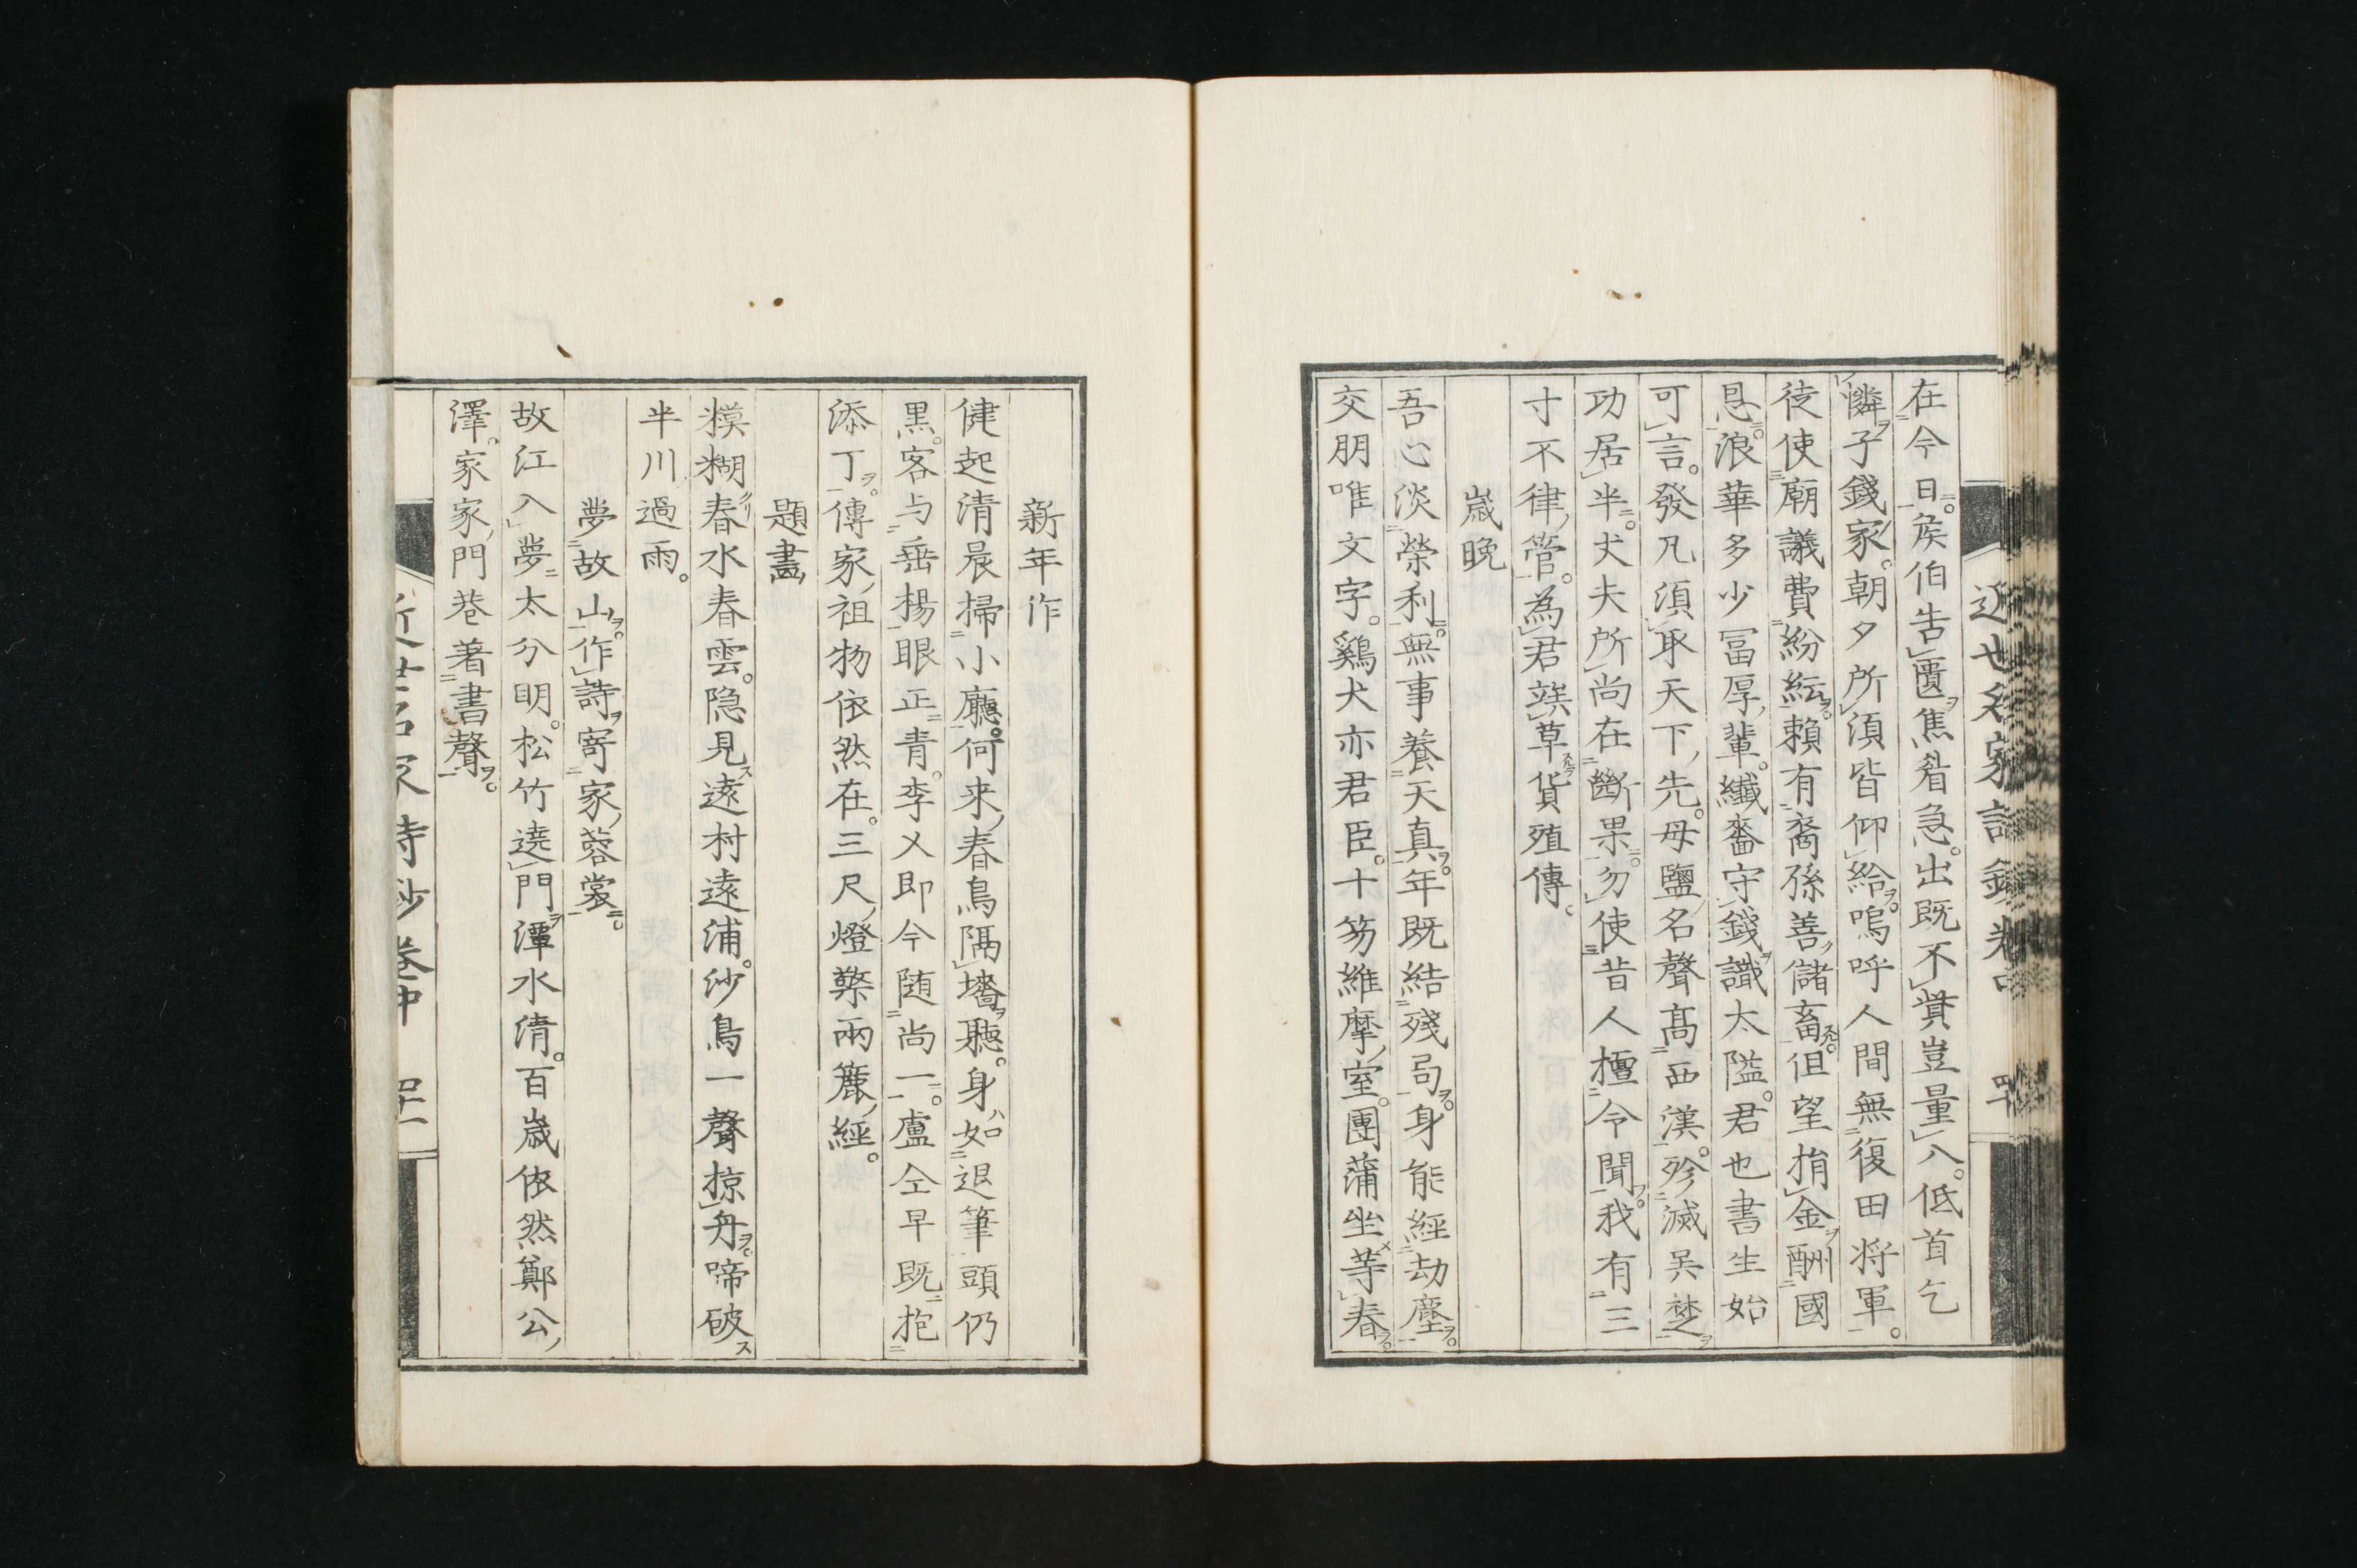 在今日。矦伯告匱焦眉急。出既不貲豈量入。低首乞
憐子錢家。朝夕所須皆仰給。嗚呼人間無復田将軍。
徒使廟議費紛紜。賴有裔孫善儲畜。但望捐金酬國
恩。浪華多少冨厚輩。纖嗇守錢識太隘。君也書生始
可言。發凡須取天下先。毋鹽名聲髙西漢。殄滅吴楚
功居半。丈夫所尚在斷果。勿使昔人擅令聞。我有三
寸不律管。為君𥪡草貨殖傳。
歳晩
吾心淡榮利。無事養天真。年既結殘局。身能經劫塵。
交朋唯文字。鷄犬亦君臣。十笏維摩室。團蒲坐等春。
新年作
健起清晨掃小廳。何来春鳥隔墻聽。身如退筆頭仍
黒。客与垂楊眼正青。李乂即今随尚一。盧仝早既抱
添丁。傳家祖物依然在。三尺燈檠兩簏經。
題畫
糢糊春水春雲。隐見遠村遠浦。沙鳥一聲掠舟。啼破
半川過雨。
夢故山作詩寄家蓉裳。
故江入夢太分明。松竹遶門潭水清。百歳依然鄭公
澤。家家門巷著書聲。
近世名家詩鈔卷中 四十一